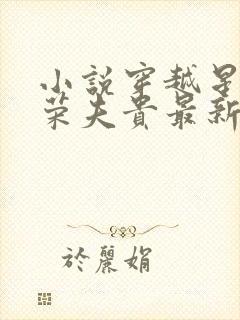 小說穿越星
荣夫貴最新
於麗娟